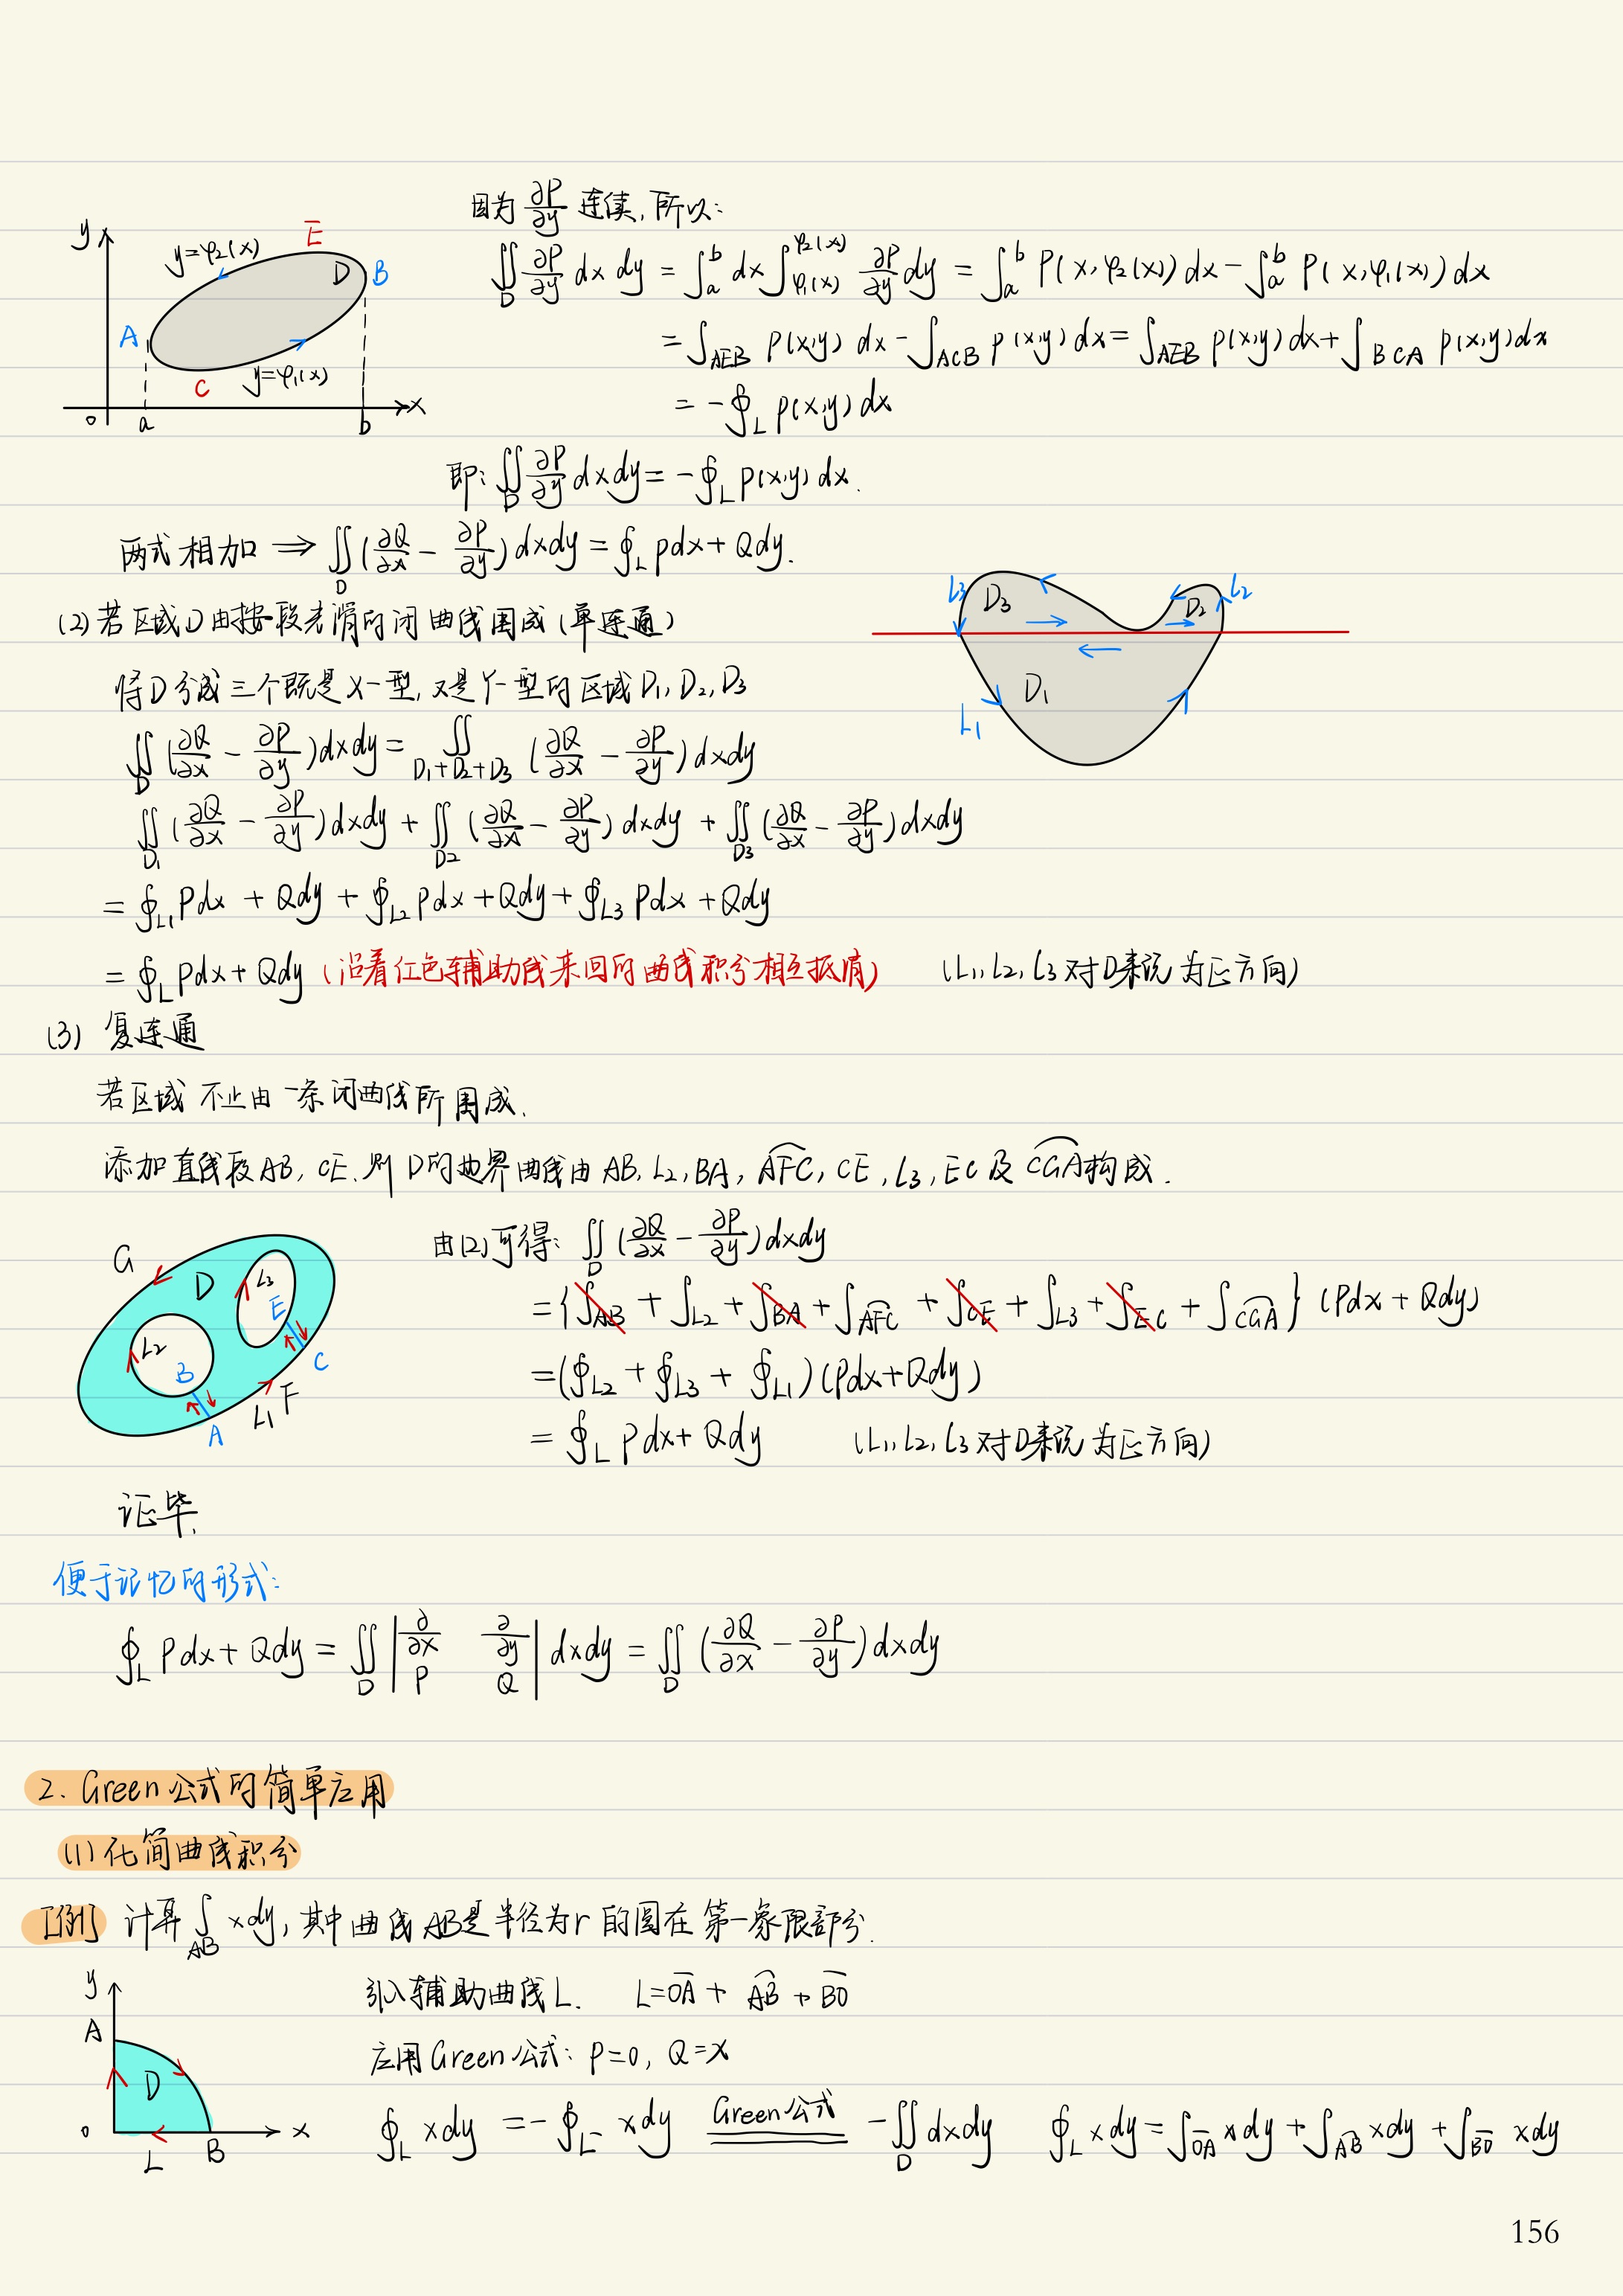 因为 ∂P/∂y 连续,所以:
∬_D ∂P/∂y dx dy = ∫_a^b dx ∫_{φ₁(x)}^{φ₂(x)} ∂P/∂y dy = ∫_a^b P(x,φ₂(x)) dx - ∫_a^b P(x,φ₁(x)) dx
= ∫_{AEB} P(x,y) dx - ∫_{ACB} P(x,y) dx = ∫_{AEB} P(x,y) dx + ∫_{BCA} P(x,y) dx
= -∮_L P(x,y) dx
y
y=φ₂(x)
E
D
B
A
C
y=φ₁(x)
o a b x
即: ∬_D ∂P/∂y dxdy = -∮_L P(x,y) dx.
两式相加 ⇒ ∬_D (∂Q/∂x - ∂P/∂y) dxdy = ∮_L Pdx + Qdy.
(2) 若区域D由按段光滑的闭曲线围成(单连通)
将D分成三个既是X-型,又是Y-型的区域D₁,D₂,D₃
L₃ D₃ D₂ L₂
D₁
L₁
∬_D (∂Q/∂x - ∂P/∂y) dxdy = ∬_{D₁+D₂+D₃} (∂Q/∂x - ∂P/∂y) dxdy
∬_{D₁} (∂Q/∂x - ∂P/∂y) dxdy + ∬_{D₂} (∂Q/∂x - ∂P/∂y) dxdy + ∬_{D₃} (∂Q/∂x - ∂P/∂y) dxdy
= ∮_{L₁} Pdx + Qdy + ∮_{L₂} Pdx + Qdy + ∮_{L₃} Pdx + Qdy
= ∮_L Pdx + Qdy (沿着红色辅助线来回的曲线积分相互抵消) (L₁,L₂,L₃对D来说为正方向)
(3) 复连通
若区域不止由一条闭曲线所围成.
添加直线段AB,CE.则D的边界曲线由AB,L₂,BA,A͡FC,CE,L₃,EC及C͡GA构成.
G D L₃ E
L₂ B C
A L₁ F
由(2)可得: ∬_D (∂Q/∂x - ∂P/∂y) dxdy
= {∫_{AB} + ∫_{L₂} + ∫_{BA} + ∫_{A͡FC} + ∫_{CE} + ∫_{L₃} + ∫_{EC} + ∫_{C͡GA}} (Pdx + Qdy)
= (∮_{L₂} + ∮_{L₃} + ∮_{L₁}) (Pdx + Qdy)
= ∮_L Pdx + Qdy (L₁,L₂,L₃对D来说为正方向)
证毕.
便于记忆的形式:
∮_L Pdx + Qdy = ∬_D | ∂/∂x ∂/∂y ; P Q | dxdy = ∬_D (∂Q/∂x - ∂P/∂y) dxdy
2. Green公式的简单应用
(1) 化简曲线积分
[例] 计算 ∫_{AB} xdy, 其中曲线AB是半径为r的圆在第一象限部分.
引入辅助曲线L. L = O̅A̅ + A͡B + B̅O̅
应用Green公式: P=0, Q=x
y
A
D
o L B x
∮_L xdy = -∮_{L⁻} xdy =Green公式= -∬_D dxdy ∮_L xdy = ∫_{O̅A̅} xdy + ∫_{A͡B} xdy + ∫_{B̅O̅} xdy
156